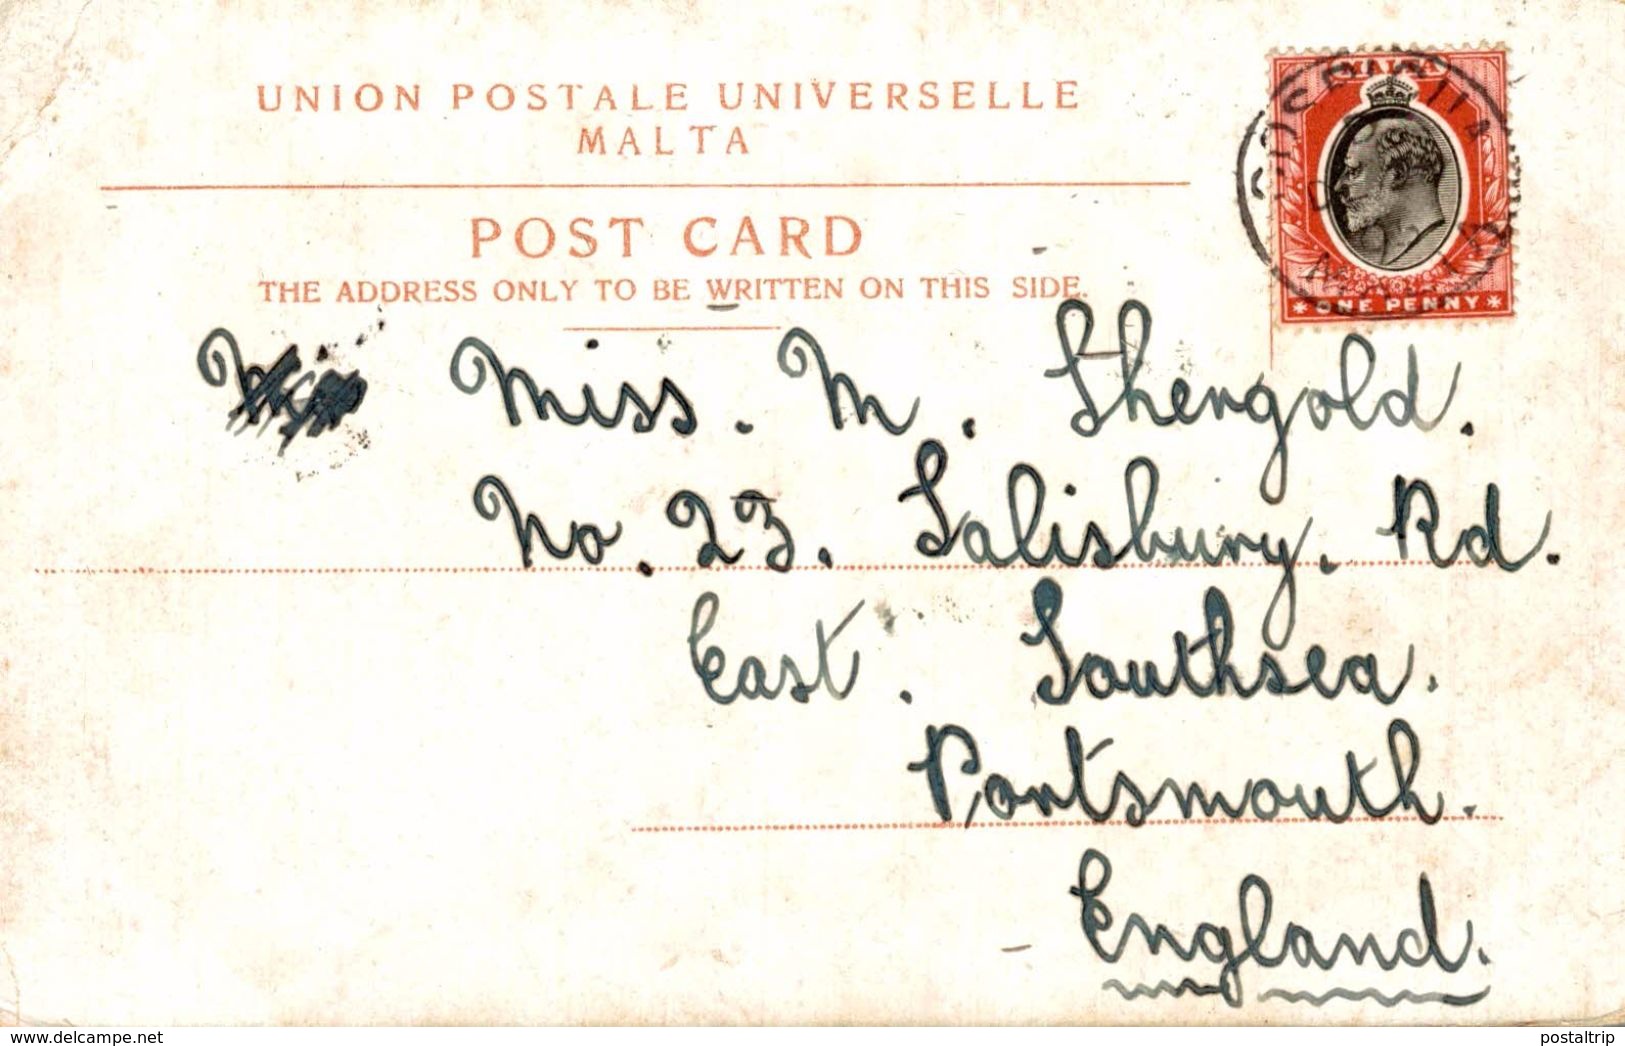 UNION POSTALE UNIVERSELLE
MALTA
POST CARD
THE ADDRESS ONLY TO BE WRITTEN ON THIS SIDE.
MALTA
ONE PENNY
Miss. M. Shergold.
No. 23. Salisbury. Rd.
East. Southsea.
Portsmouth.
England.
www.delcampe.net
postaltrip